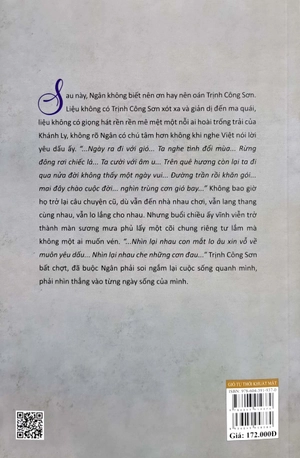 Sau này, Ngân không biết nên ơn hay nên oán Trịnh Công Sơn.
Liệu không có Trịnh Công Sơn xót xa và giản dị đến ma quái,
liệu không có giọng hát rền rền mê mệt một nỗi ai hoài trống trải của
Khánh Ly, không rõ Ngân có chú tâm hơn không khi nghe Việt nói lời
yêu dấu ấy. "...Ngày ra đi với gió... Ta nghe tình đổi mùa... Rừng
đông rơi chiếc lá... Ta cười với âm u... Trên quê hương còn lại ta đi
qua nửa đời không thấy một ngày vui... Đường trần rồi khăn gói...
mai đây chào cuộc đời... nghìn trùng cơn gió bay..." Không bao giờ
họ trở lại câu chuyện cũ, dù vẫn đến nhà nhau chơi, vẫn lang thang
cùng nhau, vẫn lo lắng cho nhau. Nhưng buổi chiều ấy vĩnh viễn trở
thành màn sương mưa phủ lấy một cõi chung riêng tư lắm mà
không một ai muốn vén. "...Nhìn lại nhau con mắt lo âu xin vỗ về
muôn yêu dấu... Nhìn lại nhau che những cơn đau..." Trịnh Công Sơn
bất chợt, đã buộc Ngân phải soi ngắm lại cuộc sống quanh mình,
phải nhìn thẳng vào từng ngày sống của mình.
GIÓ TỰ THỜI KHUẤT MẶT
Giá: 172.000Đ